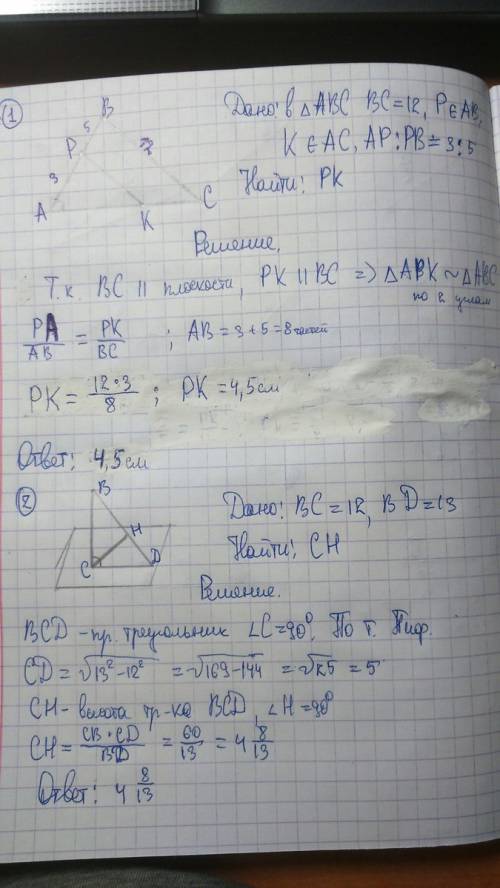 1
B
5
P
?
3
A
K
C
Дано: в △ABC BC=12, P∈AB,
K∈AC, AP:PB=3:5
Найти: PK
Решение.
Т.к. BC || плоскости, PK || BC => △APK ~ △ABC
по 2 углам
PA/AB = PK/BC ; AB = 3+5 = 8 частей
PK = 12·3/8 ; PK = 4,5 см
Ответ: 4,5 см
2
B
H
C
D
Дано: BC=12, BD=13
Найти: CH
Решение.
BCD - пр. треугольник ∠C=90°. По т. Пиф.
CD = √13²-12² = √169-144 = √25 = 5
CH - высота тр-ка BCD, ∠H=90°
CH = CB·CD/BD = 60/13 = 4 8/13
Ответ: 4 8/13